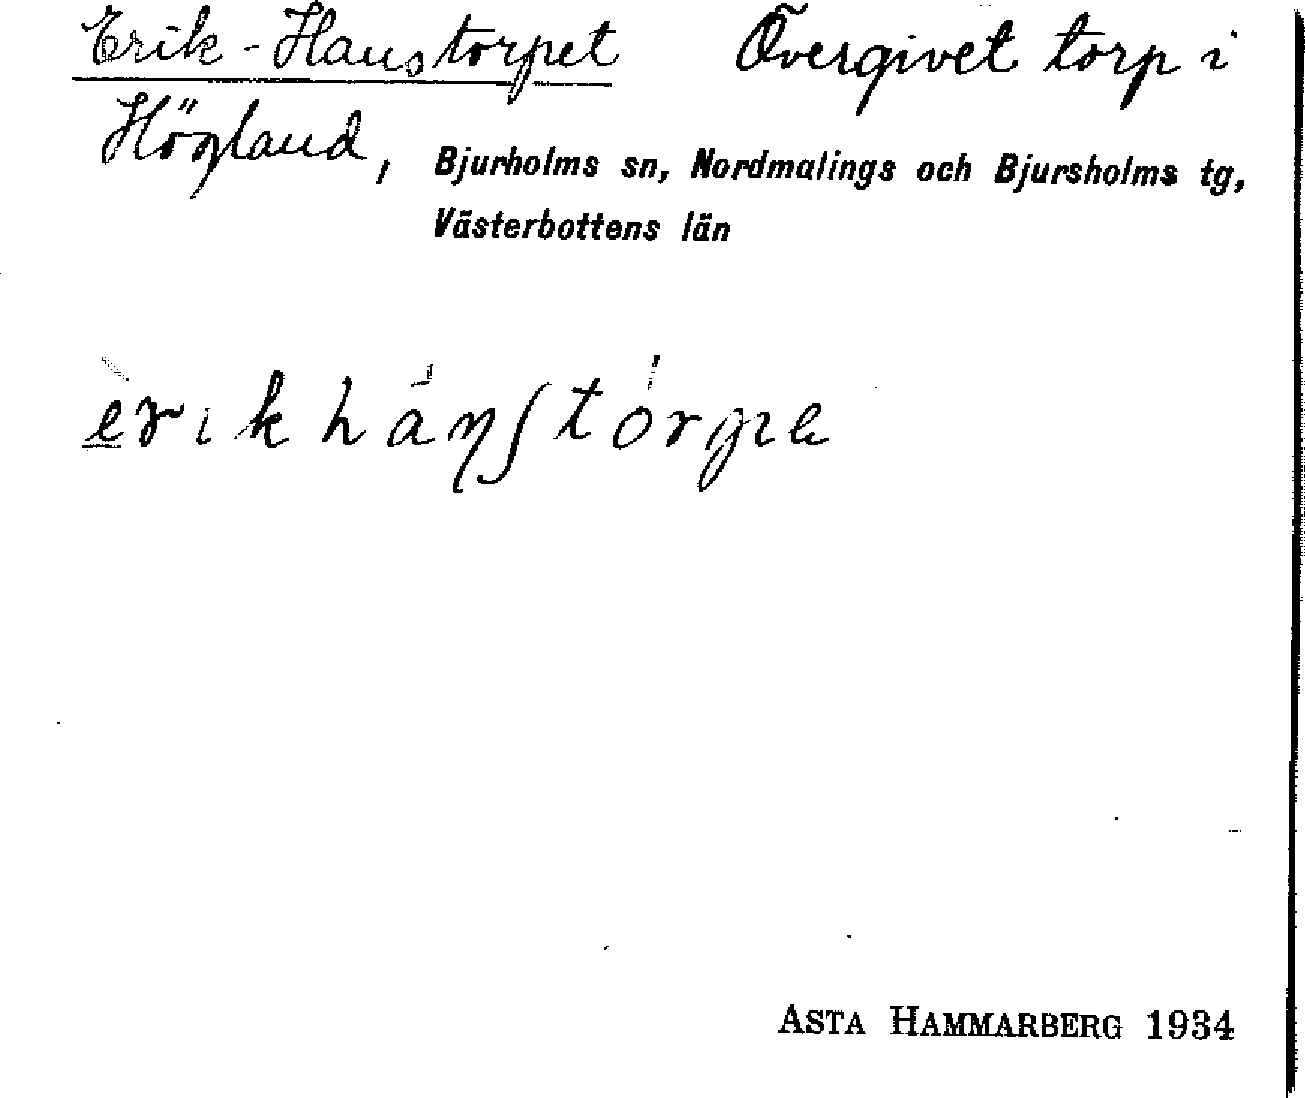 Erik-Hanstorpet Övergivet torp i
Högland, Bjurholms sn, Nordmalings och Bjursholms tg,
Västerbottens län
erik hanʃtorpe
ASTA HAMMARBERG 1934